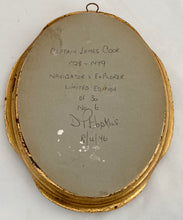 CAPTAIN JAMES COOK
1728 - 1779
NAVIGATOR & EXPLORER
LIMITED EDITION
OF 50
No 6